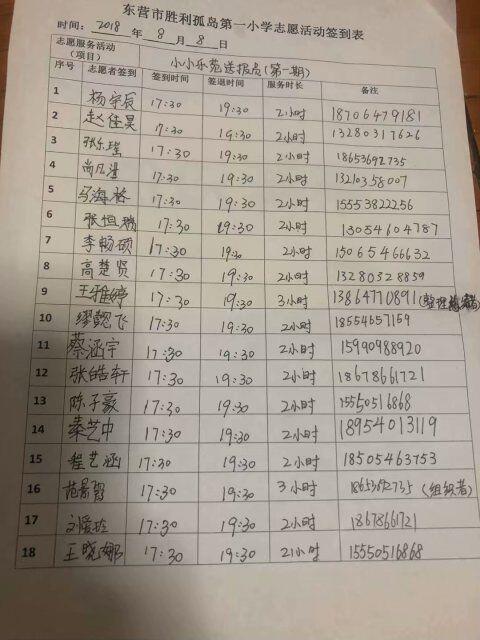 东营市胜利孤岛第一小学志愿活动签到表
时间: 2018 年 8 月 8 日
志愿服务活动(项目) 小小乐苑送报员(第一期)
序号 志愿者签到 签到时间 签退时间 服务时长 备注
1 杨宇辰 17:30 19:30 2小时 18706479181
2 赵佳昊 17:30 19:30 2小时 13280317626
3 张乐瑶 17:30 19:30 2小时 18653692735
4 尚凡 17:30 19:30 2小时 13210358007
5 马海格 17:30 19:30 2小时 15553822256
6 张恒瑞 17:30 19:30 2小时 13054604787
7 李畅硕 17:30 19:30 2小时 15065466632
8 高楚贤 17:30 19:30 2小时 13280328859
9 王雅婷 17:30 19:30 3小时 13864770891(整理
10 缪懿飞 17:30 19:30 2小时 18554657159
11 蔡涵宇 17:30 19:30 2小时 15990988920
12 张皓轩 17:30 19:30 2小时 18678661721
13 陈子豪 17:30 19:30 2小时 15550516868
14 秦艺中 17:30 19:30 2小时 18954013119
15 程艺涵 17:30 19:30 2小时 18505463753
16 范景 17:30 19:30 3小时 18653692735(组织者)
17 刘爱 17:30 19:30 2小时 18678661721
18 王晓娜 17:30 19:30 2小时 15550516868